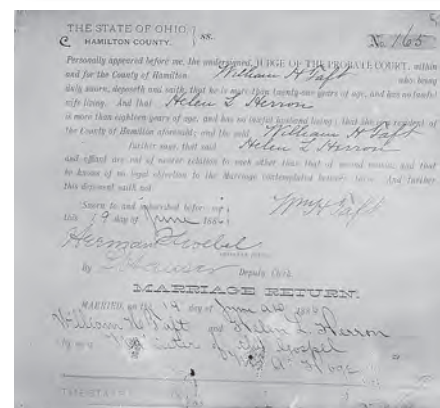 THE STATE OF OHIO, } ss.
HAMILTON COUNTY.
No. 165
Personally appeared before me, the undersigned, JUDGE OF THE PROBATE COURT, within
and for the County of Hamilton William H Taft who being
duly sworn, deposeth and saith, that he is more than twenty-one years of age, and has no lawful
wife living. And that Helen L Herron
is more than eighteen years of age, and has no lawful husband living; that she is a resident of
the County of Hamilton aforesaid; and the said William H Taft
further says, that said Helen L Herron
and affiant are not of nearer relation to each other than that of second cousin, and that
he knows of no legal objection to the Marriage contemplated between them. And further
this deponent saith not.
Wm H Taft
Sworn to and subscribed before me,
this 19 day of June 1886
Herman
By Deputy Clerk.
MARRIAGE RETURN.
MARRIED, on the 19 day of June 1886
William H Taft and Helen L Herron
by me a Minister of the Gospel